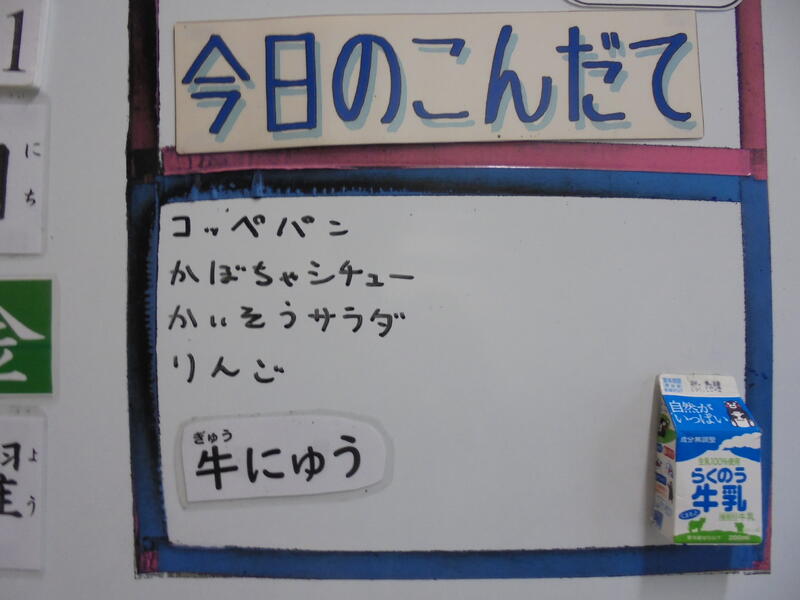 今日のこんだて
コッペパン
かぼちゃシチュー
かいそうサラダ
りんご
ぎゅう
牛にゅう
1
にち
金
よう
自然が
いっぱい
成分無調整
生乳100%使用
らくのう
牛乳
200ml